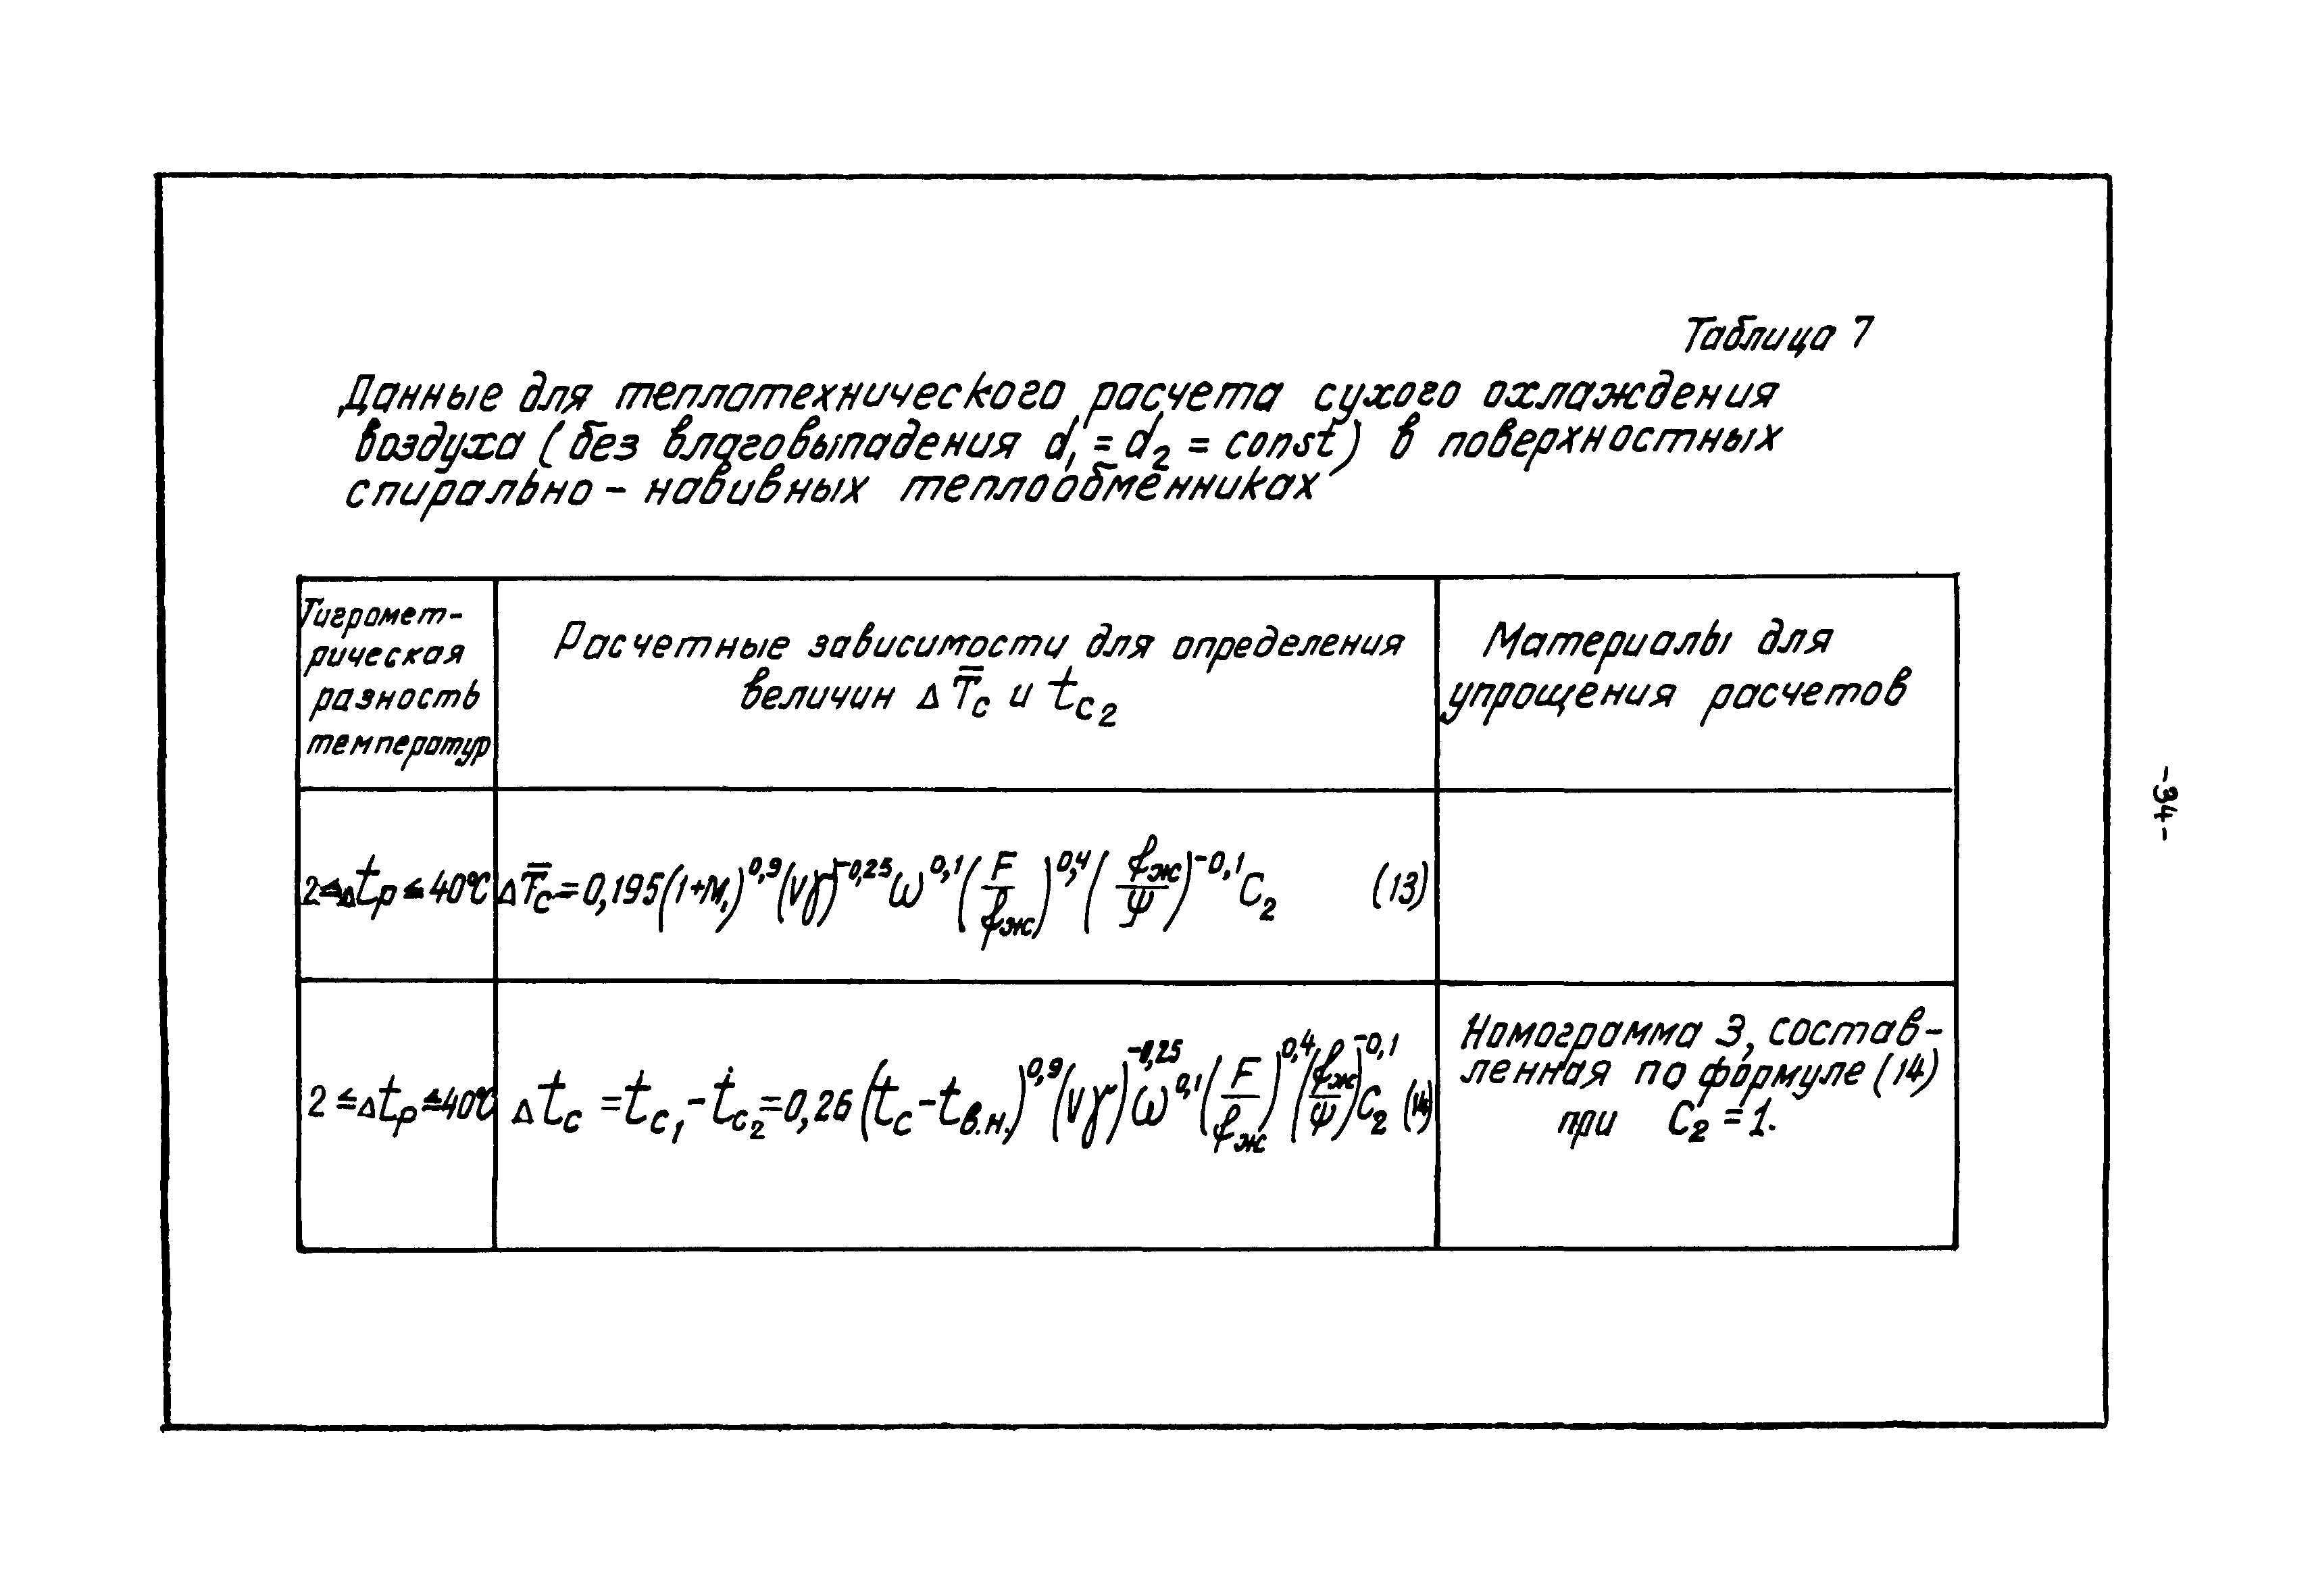 Таблица 7
Данные для теплотехнического расчета сухого охлаждения
воздуха (без влаговыпадения d₁ = d₂ = const) в поверхностных
спирально – навивных теплообменниках
Гигромет-
рическая
разность
температур
Расчетные зависимости для определения
величин Δ T̿с и tс₂
Материалы для
упрощения расчетов
2 ≤ Δtр ≤ 40°С
ΔT̿с = 0,195 (1+М₁)^0,9 (vγ)^-0,25 ω^0,1 (F/fж)^0,4 (fж/ψ)^-0,1 С₂ (13)
2 ≤ Δtр ≤ 40°С
Δtс = tс₁ - tс₂ = 0,26 (tс - tв.н.)^0,9 (vγ)^-0,25 ω^0,1 (F/fж)^0,4 (fж/ψ)^-0,1 С₂ (14)
Номограмма 3, состав-
ленная по формуле (14)
при С₂ = 1.
-34-